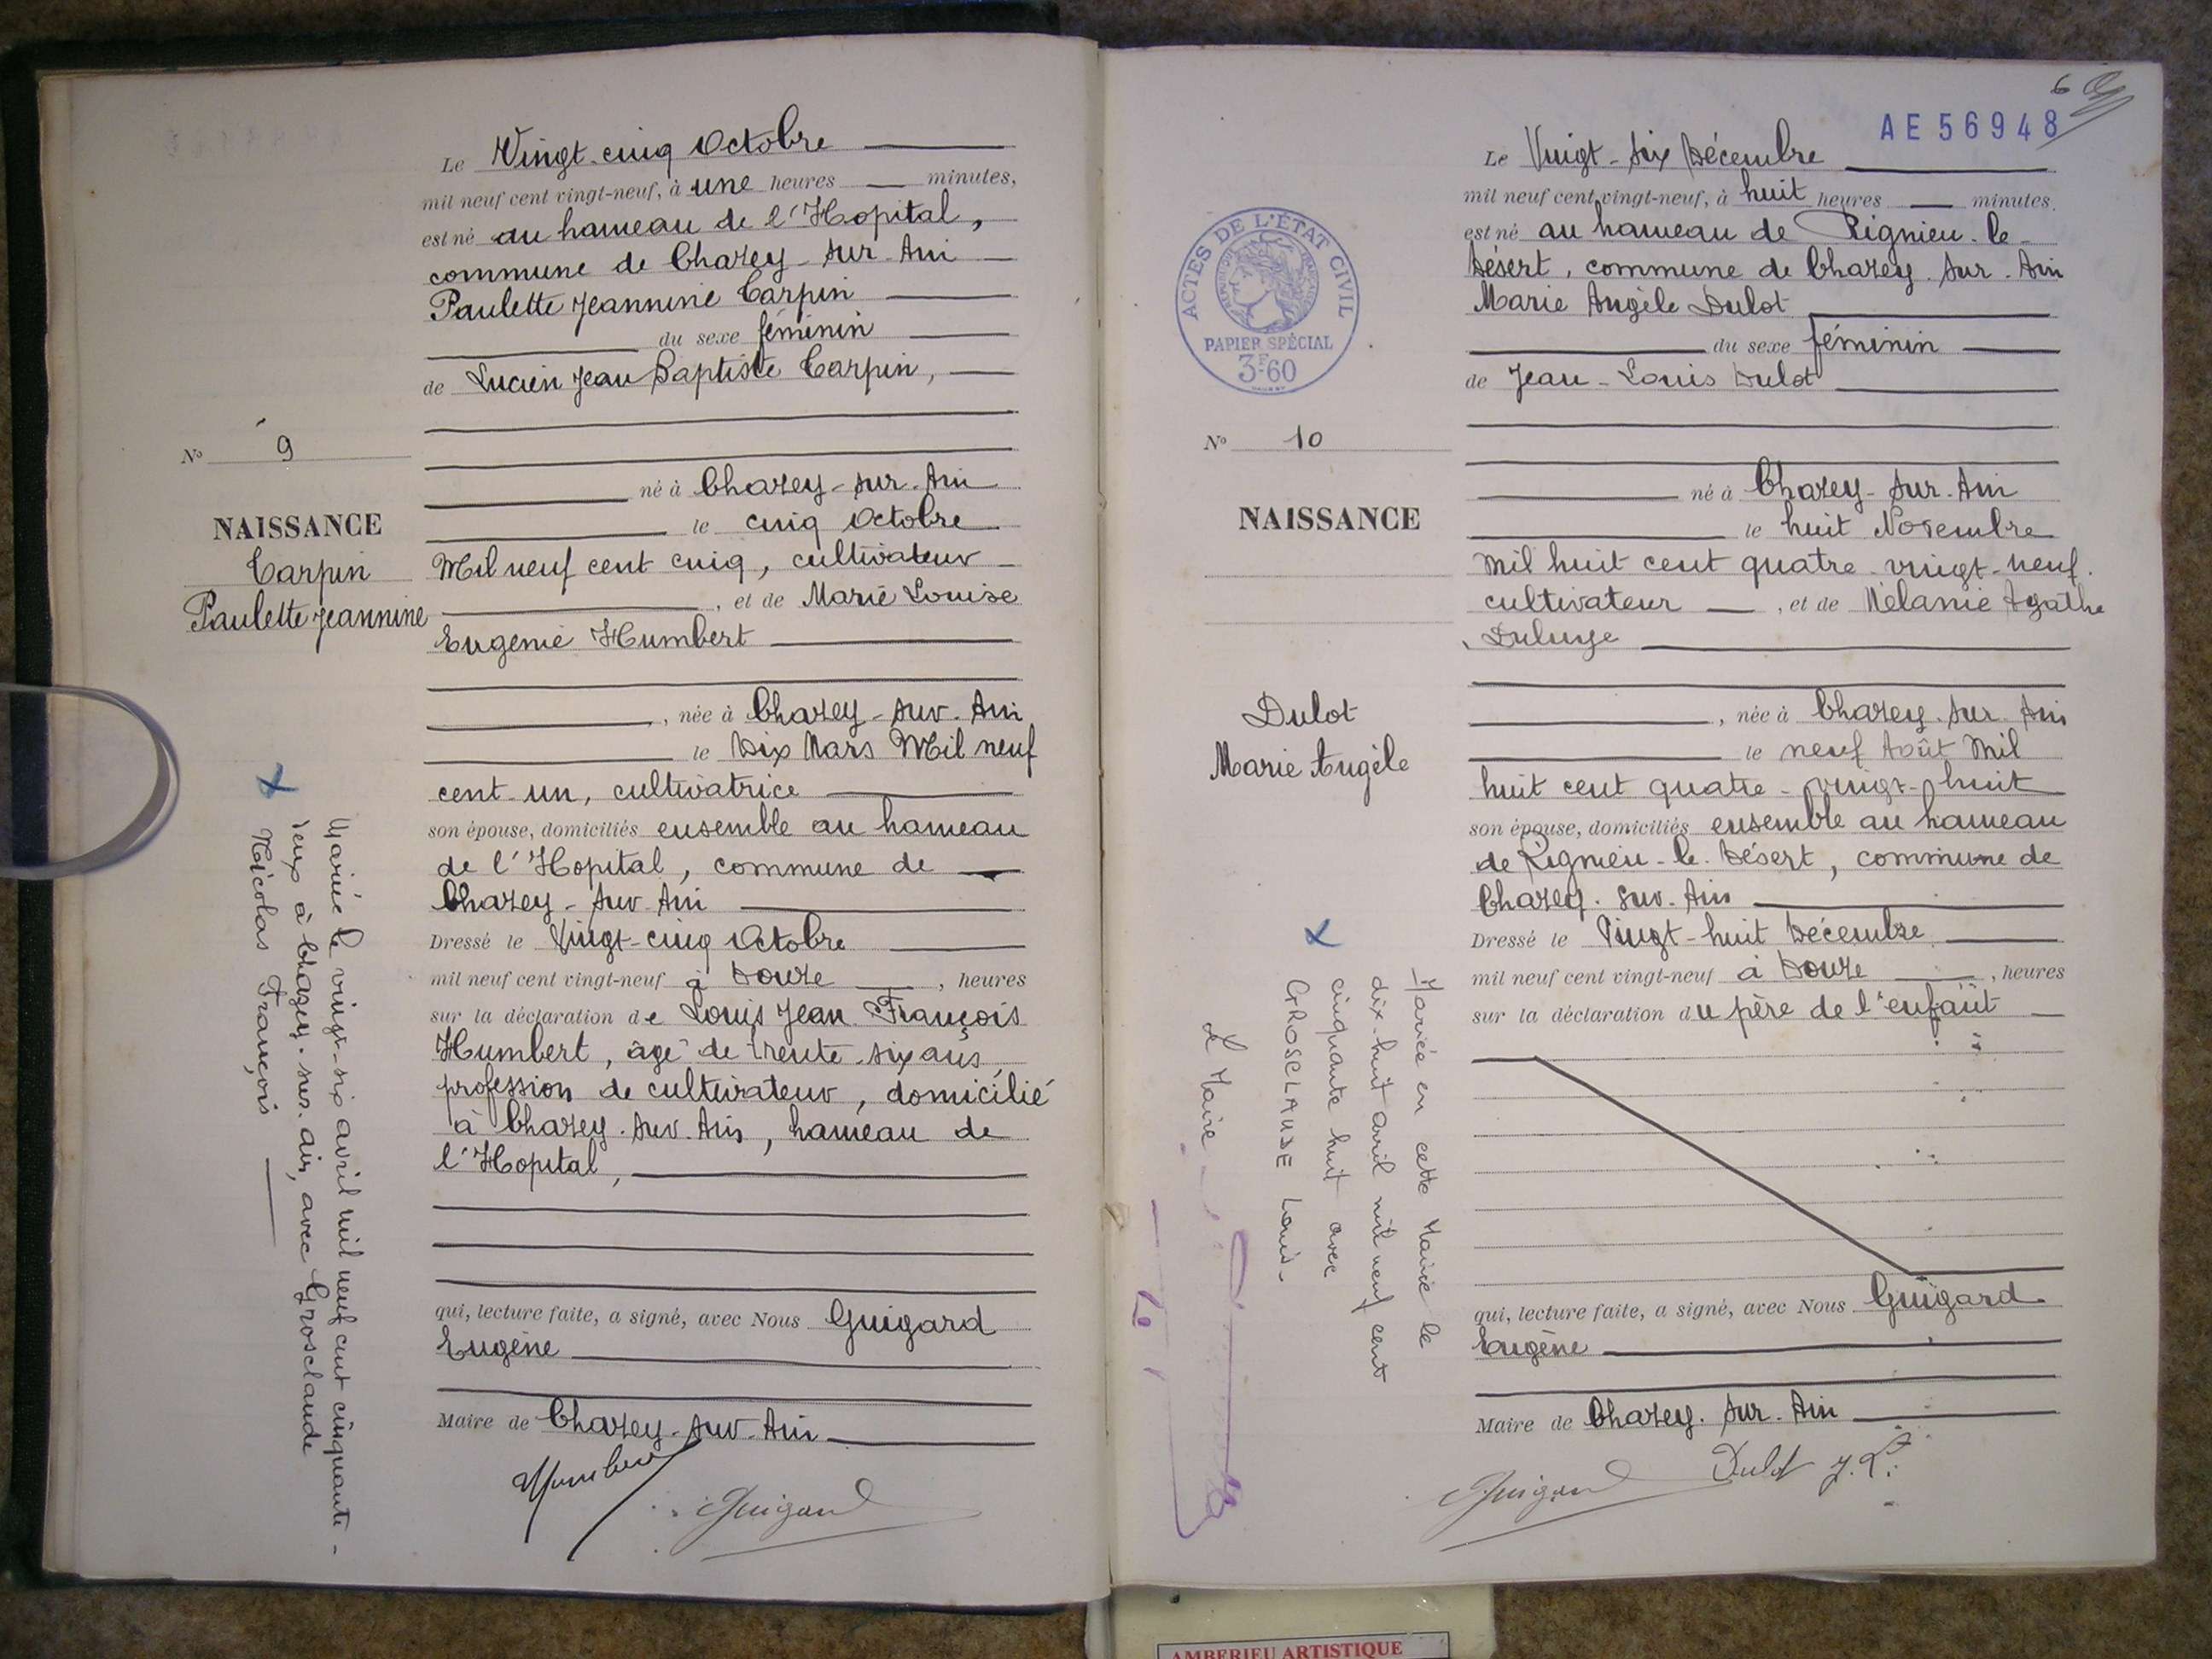 Le Vingt-cinq Octobre
mil neuf cent vingt-neuf, à une heures minutes,
est né au hameau de l'Hopital,
commune de Chazey-sur-Ain
Paulette Jeannine Carpin
du sexe féminin
de Lucien Jean Baptiste Carpin,
né à Chazey-sur-Ain
le cinq Octobre
Mil neuf cent cinq, cultivateur
, et de Marie Louise
Eugénie Humbert
, née à Chazey-sur-Ain
le Dix Mars Mil neuf
cent un, cultivatrice
son épouse, domiciliés ensemble au hameau
de l'Hopital, commune de
Chazey-sur-Ain
Dressé le Vingt-cinq Octobre
mil neuf cent vingt-neuf à Douze , heures
sur la déclaration de Louis Jean François
Humbert, âgé de trente-six ans,
profession de cultivateur, domicilié
à Chazey-sur-Ain, hameau de
l'Hopital,
qui, lecture faite, a signé, avec Nous Guigard
Eugène
Maire de Chazey-sur-Ain
Humbert
Guigard
No 9
NAISSANCE
Carpin
Paulette Jeannine
Mariée le vingt-six avril mil neuf cent cinquante-
deux à Chazey-sur-ain, avec Grosclaude
Nicolas François
6
AE 56948
Le Vingt-six Décembre
mil neuf cent vingt-neuf, à huit heures minutes.
est né au hameau de Rignieu-le-
Désert, commune de Chazey-sur-Ain
Marie Angèle Dulot
du sexe féminin
de Jean-Louis Dulot
né à Chazey-sur-Ain
le huit Novembre
Mil huit cent quatre-vingt-neuf.
cultivateur , et de Mélanie Agathe
, née à Chazey-sur-Ain
le neuf Août Mil
huit cent quatre-vingt-huit
son épouse, domiciliés ensemble au hameau
de Rignieu-le-Désert, commune de
Chazey-sur-Ain
Dressé le Vingt-huit Décembre
mil neuf cent vingt-neuf à Douze , heures
sur la déclaration du père de l'enfant
qui, lecture faite, a signé, avec Nous Guigard
Eugène
Maire de Chazey-sur-Ain
Guigard
Dulot J.L.
ACTES DE L'ÉTAT CIVIL
RÉPUBLIQUE FRANÇAISE
PAPIER SPÉCIAL
3F60
No 10
NAISSANCE
Dulot
Marie Angèle
Mariée en cette Mairie le
dix-huit avril mil neuf cent
cinquante huit avec
GROSCLAUDE Louis.
Le Maire
AMBERIEU ARTISTIQUE